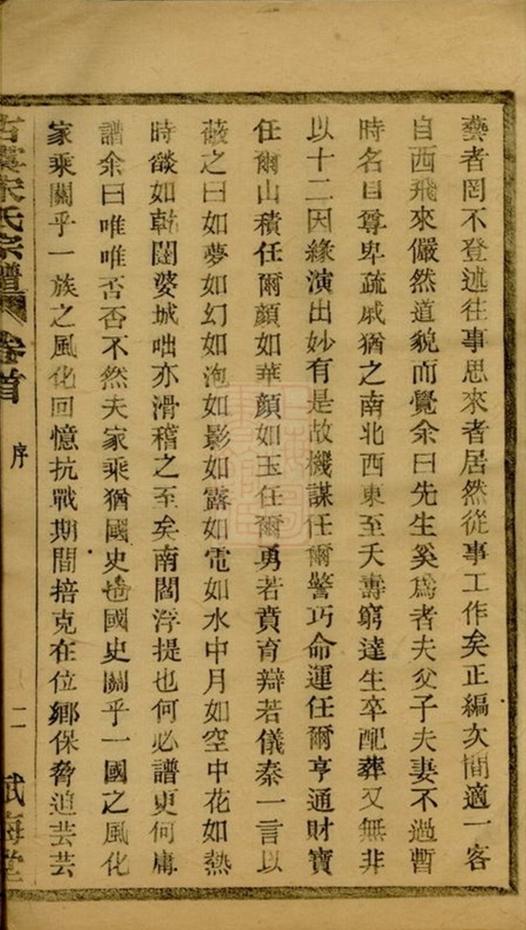 藝者罔不登述往事思來者居然從事工作矣正編次間適一客
自西飛來儼然道貌而覺余曰先生奚爲者夫父子夫妻不過暫
時名目尊卑疏戚猶之南北西東至夭壽窮達生卒配葬又無非
以十二因緣演出妙有是故機謀任爾警巧命運任爾亨通財寶
任爾山積任爾顏如華顏如玉任爾勇若賁育辯若儀秦一言以
蔽之曰如夢如幻如泡如影如露如電如水中月如空中花如熱
時燄如乾闥婆城咄亦滑稽之至矣南閻浮提也何必譜更何庸
譜余曰唯唯否否不然夫家乘猶國史也國史關乎一國之風化
家乘關乎一族之風化回憶抗戰期間掊克在位鄉保脅迫芸芸
宋氏宗譜 卷首 序 二